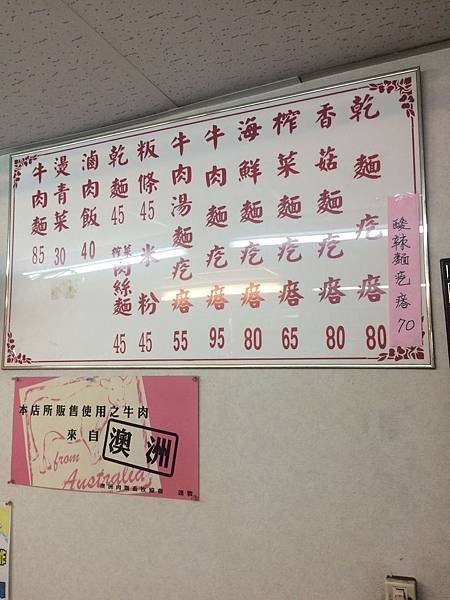 乾麵疙瘩 80
香菇麵疙瘩 80
榨菜麵疙瘩 65
海鮮麵疙瘩 80
牛肉麵疙瘩 95
牛肉湯麵疙瘩 55
粄條 45
米粉 45
乾麵 45
榨菜肉絲麵 45
滷肉飯 40
燙青菜 30
牛肉麵 85
酸辣麵疙瘩 70
本店所販售使用之牛肉
來自 澳洲
from
Australia